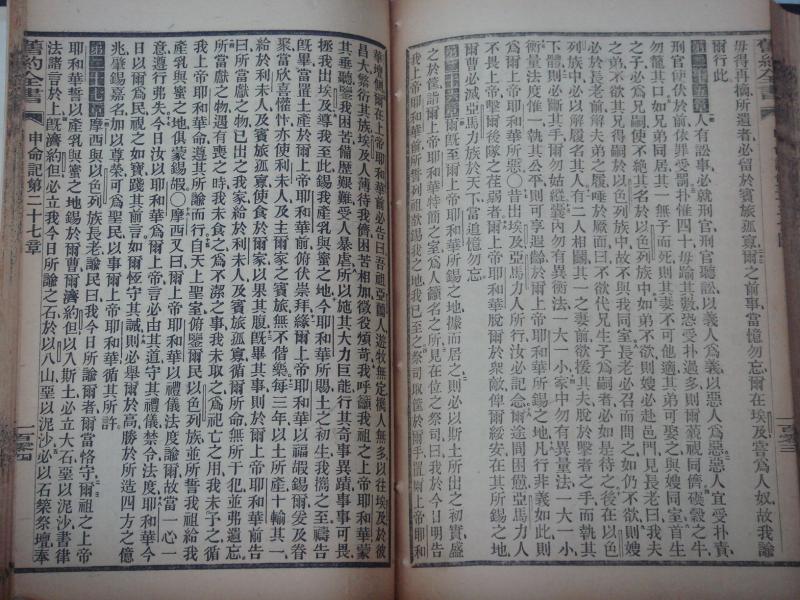 舊約全書
毋得再摘所遺者必留於賓旅孤寡爾之前事當憶勿忘爾在埃及嘗爲人奴故我諭
爾行此
第二十五章人有訟事必就刑官刑官聽訟以義人爲義以惡人爲惡惡人宜受扑責
刑官使伏於前依罪受罰扑惟四十毋踰其數恐受扑過多則爾藐視同儕碾穀之牛
勿籠其口如兄弟同居其一無子而死則其妻不可他適其弟可娶之與嫂同室首生
之子必爲兄嗣使不絕其名於以色列族中如弟不欲則嫂必赴邑門見長老曰我夫
之弟不欲其兄得嗣於以色列族中故不與我同室長老必召而問之如仍不欲則嫂
必於長老前解夫弟之履唾於厥面曰不欲代兄生子爲嗣者必如是待之後在以色
列族中必以解履名其人有二人相鬬其一之妻前欲援其夫脫於擊者之手而執其
下體則必斷其手爾勿姑縱囊內勿有異衡法一大一小家中勿有異量法一大一小
衡量法度惟一執其公平則可享遐齡於爾上帝耶和華所錫之地凡行非義如此則
爲爾上帝耶和華所惡○昔出埃及亞馬力人所行汝必記念爾途間困憊亞馬力人
不畏上帝擊爾後隊之在弱者爾上帝耶和華脫爾於衆敵俾爾綏安在其所錫之地
爾曹必滅亞馬力族於天下當追憶勿忘
第二十六章爾旣至爾上帝耶和華所錫之地據而居之則必以斯土所出之初實盛
之於筐詣爾上帝耶和華特簡之室爲人籲名之所見在位之祭司曰我於今日明告
我上帝耶和華前所誓列祖欲錫我之地我已至之祭司取筐於爾手置爾上帝耶和
華壇側爾在上帝耶和華前必告曰吾祖亞蘭人遊牧無定攜人無多以往埃及於彼
昌大蕃衍其族埃及人薄待我儕困苦相加徵役煩苛我呼籲我祖之上帝耶和華蒙
其垂聽鑒我困苦備歷艱難受人暴虐所以施其大力巨能行其奇事異蹟事事可畏
拯我出埃及導我至此錫我產乳與蜜之地今耶和華所賜土之初生我攜之至禱告
旣畢當置土產於爾上帝耶和華前俯伏崇拜緣爾上帝耶和華以福嘏錫爾爰及眷
聚當欣喜懽忭亦使利未人及主爾家之賓旅無不偕樂每三年以土所產十輸其一
給於利未人及賓旅孤寡使食於爾家以果其腹旣畢其事則於爾上帝耶和華前告
曰所當獻之物已出之我家給於利未人及賓旅孤寡循爾所命無所干犯並弗遺忘
所當獻之物遇有喪之時我未食之爲不潔之事我未取之爲祀亡之用我未予之循
我上帝耶和華命遵其所諭而行自天上聖室俯鑒爾民以色列族並所誓我祖給我
產乳與蜜之地俱蒙錫嘏○摩西又曰爾上帝耶和華以禮儀法度諭爾故當一心一
意遵行弗失今日汝以耶和華爲爾上帝言必由其道守其禮儀禁令法度耶和華今
日以爾爲民視之如寶踐其前言如爾恆守其誡則必舉爾於高勝於所造四方之億
兆肇錫嘉名加以尊榮可爲聖民以事爾上帝耶和華循其所許
第二十七章摩西與以色列族長老諭民曰我今日所諭爾者爾當恪守爾祖之上帝
耶和華誓以產乳與蜜之地錫於爾曹爾濟約但以入斯土必立大石堊以泥沙書律
法諸言於上旣濟約但必立我今日所諭之石於以八山堊以泥沙必以石築祭壇奉
舊約全書
申命記第二十七章
一百零四